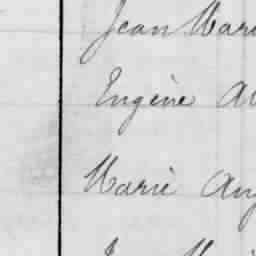 Jean Mari
Eugène Au
Marie Ang